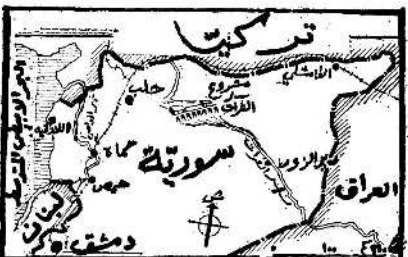 تركيا
القامشلي
حلب
مشروع
سد
الفرات
البحر الابيض المتوسط
اللاذقية
حماة
سورية
نهر الفرات
دير الزور
العراق
حمص
لبنان
دمشق
ش
١٠٠